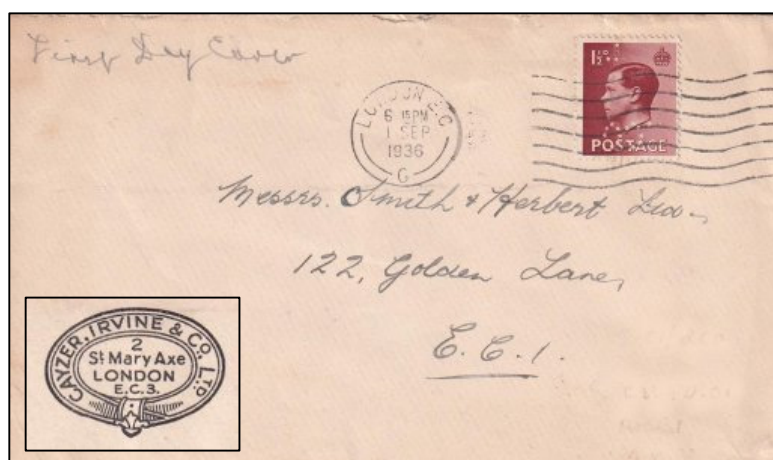 First Day Cover
1½D
POSTAGE
LONDON E.C
6 15PM
1 SEP
1936
G
Messrs. Smith & Herbert Ltd.
122, Golden Lane,
E.C.1.
CAYZER, IRVINE & CO. LTD.
2
St Mary Axe
LONDON
E.C.3.